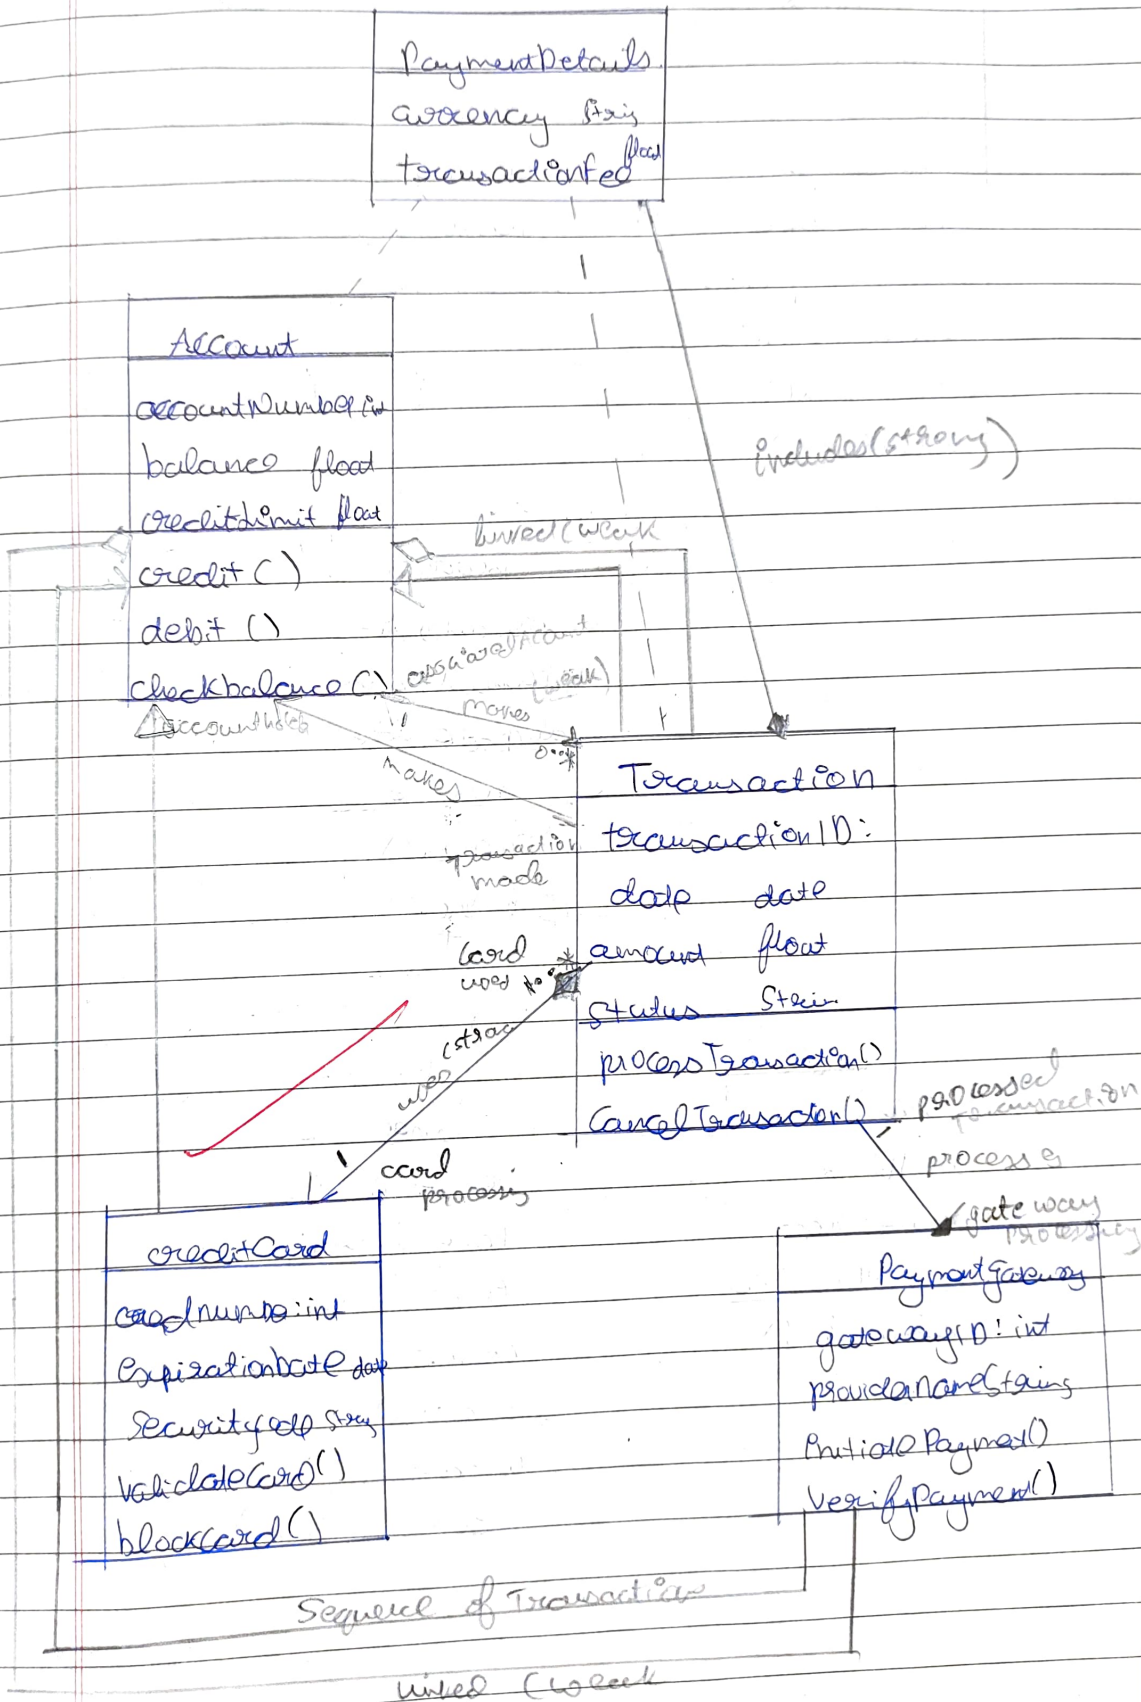 PaymentDetails
currency
transactionFee float
Account
accountNumber int
balance float
creditLimit float
credit()
debit()
checkbalance()
linked (weak
includes(strong)
(weak)
makes
accountholder
makes
0..*
transaction
made
Transaction
transactionID:
date date
amount float
status
processTransaction()
CancelTransaction()
Card
used
*
uses (strong
1
card
processing
processed
Transaction
processes
gateway
processing
creditCard
int
expirationDate date
securitycode
validateCard()
blockCard()
PaymentGateway
gatewayID: int
providerName String
initiatePayment()
verifyPayment()
Sequence of Transaction
linked (weak